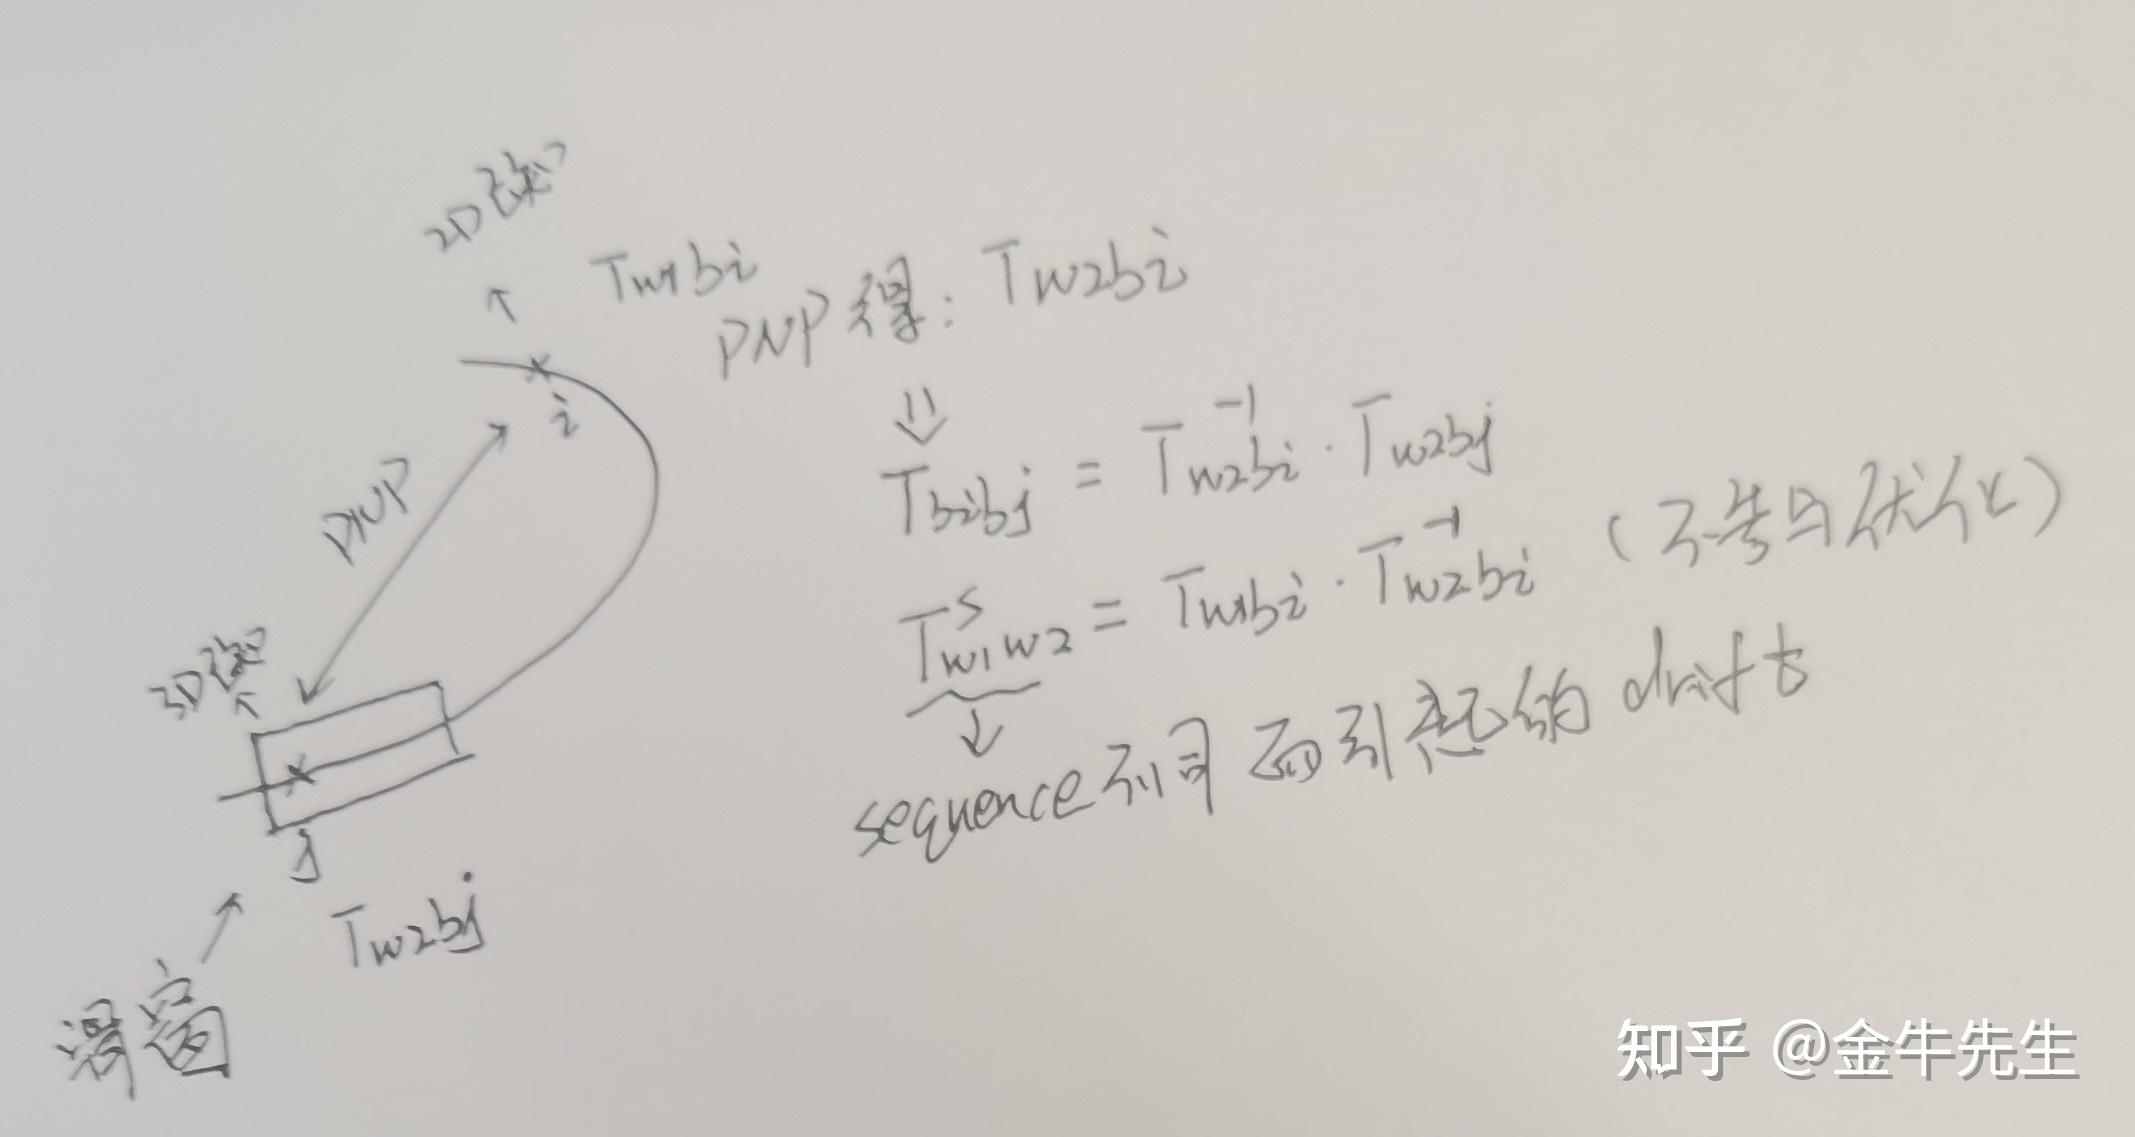 2D已知
Tw1bi
PNP得: Tw2bi
i
PNP
⇓
Tbibj = Tw2bi⁻¹ · Tw2bj
Tˢw1w2 = Tw1bi · Tw2bi⁻¹ (不参与优化)
3D已知
sequence不同而引起的drift
j
Tw2bj
滑窗
知乎 @金牛先生